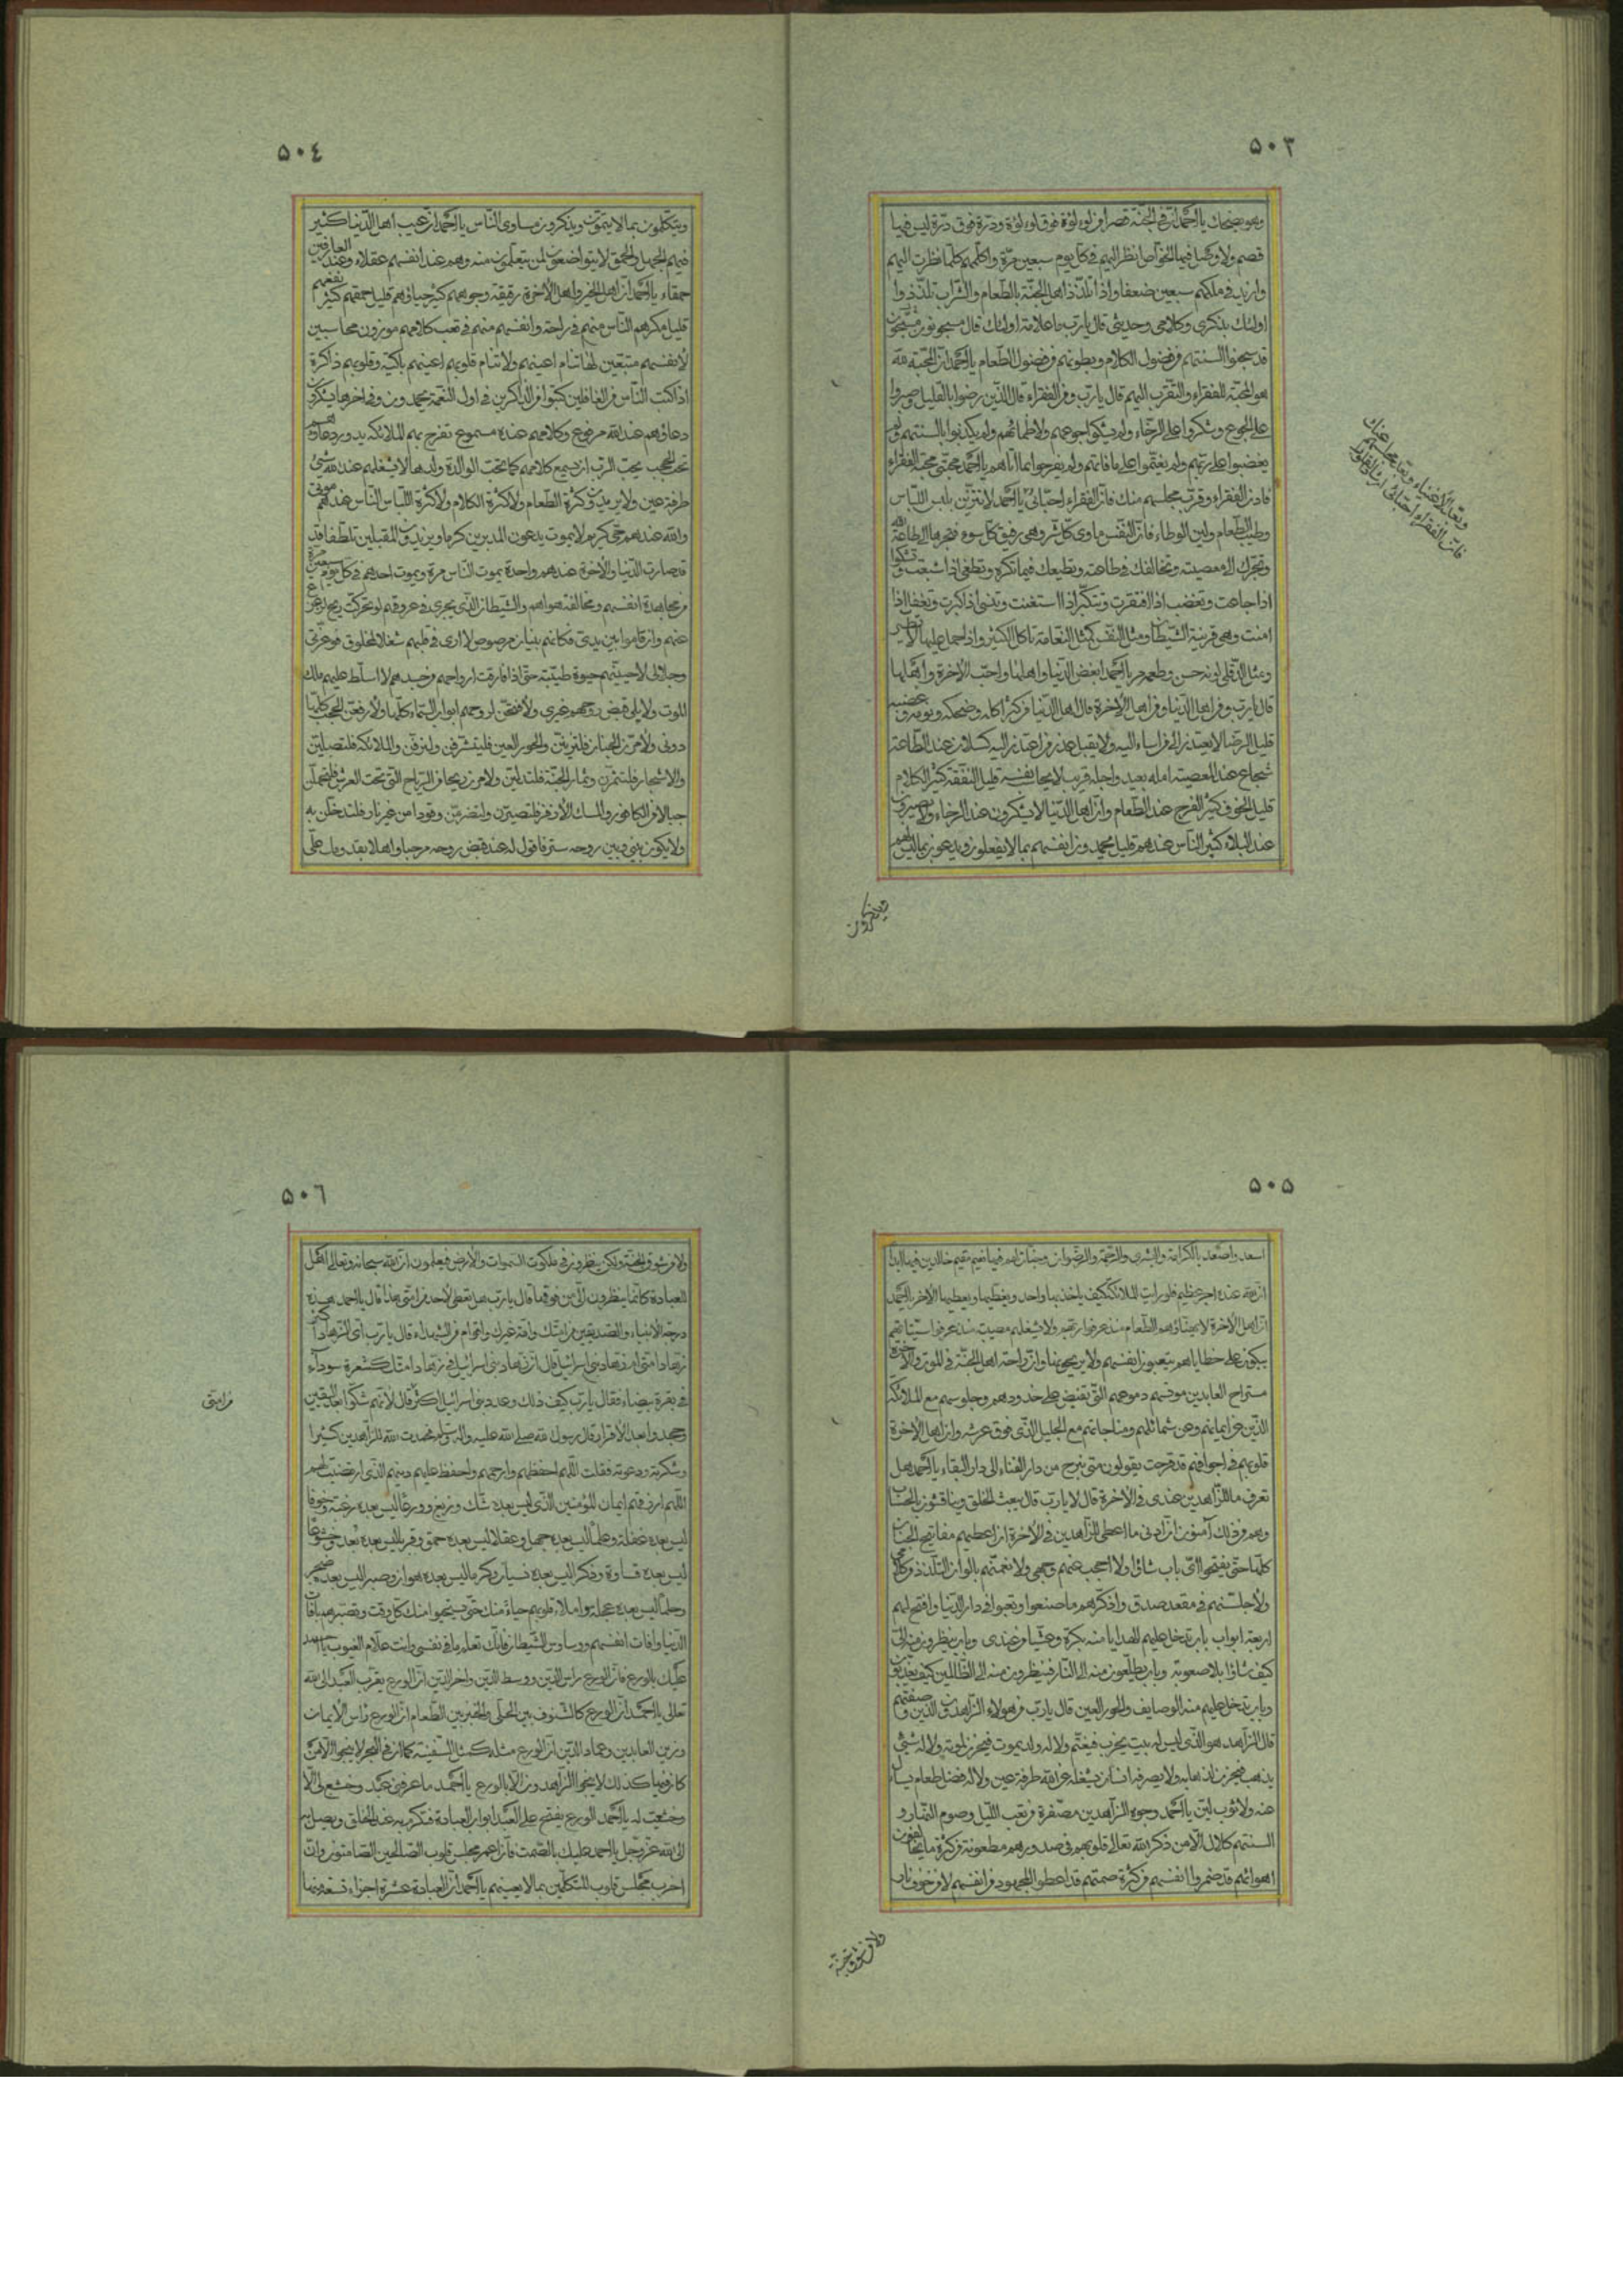 ٥٠٣
وهو يضحك يا احمد ان فى الجنة قصرا من لؤلؤة فوق لؤلؤة ودرة فوق درة ليس فيها
قصم ولا وصل فيها الخواص انظر اليهم فى كل يوم سبعين مرة واكلمهم كلما نظرت اليهم
وازيد فى ملكهم سبعين ضعفا واذا تلذذ اهل الجنة بالطعام والشراب تلذذوا
اولئك بذكرى وكلامى وحديثى قال يا رب ما علامة اولئك قال مسجونون
قد سجنوا السنتهم من فضول الكلام وبطونهم من فضول الطعام يا احمد ان المحبة لله
هو المحبة للفقراء والتقرب اليهم قال يا رب ومن الفقراء قال الذين رضوا بالقليل وصبروا
على الجوع وشكروا على الرخاء ولم يشكوا جوعهم ولا ظمأهم ولم يكذبوا بالسنتهم ولم
يغضبوا على ربهم ولم يغتموا على ما فاتهم ولم يفرحوا بما اتاهم يا احمد محبتى محبة الفقراء
فادن الفقراء وقرب مجلسهم منك فان الفقراء احبائى يا احمد لا تتزين بلبس اللباس
وطيب الطعام ولين الوطاء فان النفس ماوى كل شر وهى رفيق كل سوء تجرها الى طاعة الله
وتجرك الى معصيته وتخالفك فى طاعته وتطيعك فيما تكره وتطغى اذا شبعت وتشكوا
اذا جاعت وتغضب اذا افتقرت وتتكبر اذا استغنت وتنسى اذا كبرت وتغفل اذا
امنت وهى قرينة الشيطان ومثل النفس كمثل النعامة تاكل الكثير واذا حمل عليها لا تطير
ومثل الدفلى لونه حسن وطعمه مر يا احمد ابغض الدنيا واهلها واحب الاخرة واهلها
قال يا رب ومن اهل الدنيا ومن اهل الاخرة قال اهل الدنيا من كثر اكله وضحكه ونومه وغضبه
قليل الرضا لا يعتذر الى من اساء اليه ولا يقبل عذر من اعتذر اليه كسلان عند الطاعة
شجاع عند المعصية امله بعيد واجله قريب لا يحاسب نفسه قليل النفقة كثير الكلام
قليل الخوف كثير الفرح عند الطعام وان اهل الدنيا لا يشكرون عند الرخاء ولا يصبرون
عند البلاء كثير الناس عندهم قليل يحمدون انفسهم بما لا يفعلون ويدعون بما ليس لهم
وبعد الاغنياء وبعد مجلسهم عنك
فان الفقراء احبائى
٥٠٤
ويتكلمون بما لا يتمنون ويذكرون مساوى الناس يا احمد ان عيب اهل الدنيا كثير
فيهم الجهل والحمق لا يتواضعون لمن يتعلمون منه وهم عند انفسهم عقلاء وعند العارفين
حمقاء يا احمد ان اهل الخير واهل الاخرة رقيقة وجوههم كثير حياؤهم قليل حمقهم كثير نفعهم
قليل مكرهم الناس منهم فى راحة وانفسهم منهم فى تعب كلامهم موزون محاسبين
لانفسهم متعبين لها تنام اعينهم ولا تنام قلوبهم اعينهم باكية وقلوبهم ذاكرة
اذا كتب الناس من الغافلين كتبوا من الذاكرين فى اول النعمة يحمدون وفى اخرها يشكرون
دعاؤهم عند الله مرفوع وكلامهم عنده مسموع تفرح بهم الملائكة يدور دعاؤهم
تحت الحجب يحب الرب ان يسمع كلامهم كما تحب الوالدة ولدها لا يشغلهم عند الله شئ
طرفة عين ولا يريدون كثرة الطعام ولا كثرة الكلام ولا كثرة اللباس الناس عندهم موتى
والله عندهم حى كريم لا يموت يدعون المدبرين كرما ويريدون المقبلين تلطفا قد
قد صارت الدنيا والاخرة عندهم واحدة يموت الناس مرة ويموت احدهم فى كل يوم سبعين مرة
من مجاهدة انفسهم ومخالفة هواهم والشيطان الذى يجرى فى عروقهم لو تحركت ريح لزعزعتهم
عنهم وان قاموا بين يدى فكانهم بنيان مرصوص لا ارى فى قلبهم شغلا لمخلوق فوعزتى
وجلالى لاحيينهم حيوة طيبة حتى اذا فارقت ارواحهم من جسدهم لا اسلط عليهم ملك
الموت ولا يلى قبض روحهم غيرى ولافتحن لروحهم ابواب السماء كلها ولارفعن الحجب كلها
دونى ولامرن الجنان فلتزينن والحور العين فليشرقن ولتزفن والملائكة فلتصلين
والاشجار فلتثمرن وثمار الجنة فلتدلين ولامرن ريحا من الرياح التى تحت العرش فلتحملن
جبالا من الكافور والمسك الاذفر فلتصيرن ولتضرمن وقودا من غير نار فلتدخلن به
ولا يكون بينى وبين روحه ستر فاقول له عند قبض روحه مرحبا واهلا بقدومك على
٥٠٥
اسعد واصعد بالكرامة والبشرى والرحمة والرضوان وجنات لهم فيها نعيم مقيم خالدين فيها ابدا
ان الله عنده اجر عظيم فلو رايت الملائكة كيف ياخذ بها واحد ويعطيها الاخر يا احمد
ان اهل الاخرة لا يهنؤهم الطعام منذ عرفوا ربهم ولا يشغلهم مصيبة منذ عرفوا سيئاتهم
يبكون على خطاياهم يتعبون انفسهم ولا يريحونها وان راحة اهل الجنة فى الموت والاخرة
مستراح العابدين مونسهم دموعهم التى تفيض على خدودهم وجلوسهم مع الملائكة
الذين عن ايمانهم وعن شمائلهم ومناجاتهم مع الجليل الذى فوق عرشه وان اهل الاخرة
قلوبهم فى اجوافهم قد قرحت يقولون متى نستريح من دار الفناء الى دار البقاء يا احمد هل
تعرف ما للزاهدين عندى فى الاخرة قال لا يا رب قال يبعث الخلق ويناقشون بالحساب
وهم من ذلك آمنون ان ادنى ما اعطى الزاهدين فى الاخرة ان اعطيهم مفاتيح الجنان
كلها حتى يفتحوا اى باب شاؤا ولا احجب عنهم وجهى ولانعمنهم بالوان التلذذ من كلامى
ولاجلسنهم فى مقعد صدق واذكرهم ما صنعوا وتعبوا فى دار الدنيا وافتح لهم
اربعة ابواب باب تدخل عليهم الهدايا منه بكرة وعشيا من عندى وباب ينظرون منه الى
كيف شاؤا بلا صعوبة وباب يطلعون منه الى النار فينظرون منه الى الظالمين كيف يعذبون
وباب تدخل عليهم منه الوصايف والحور العين قال يا رب من هؤلاء الزاهدون الذين وصفتهم
قال الزاهد هو الذى ليس له بيت يخرب فيغتم ولا له ولد يموت فيحزن لموته ولا له شئ
يذهب فيحزن لذهابه ولا يعرفه انسان يشغله عن الله طرفة عين ولا له فضل طعام يسال
عنه ولا ثوب لين يا احمد وجوه الزاهدين مصفرة من تعب الليل وصوم النهار و
السنتهم كلال الا من ذكر الله تعالى قلوبهم فى صدورهم مطعونة من كثرة ما يخالفون
اهوائهم قد ضمروا انفسهم من كثرة صمتهم قد اعطوا المجهود من انفسهم لا من خوف نار
ولا من شوق جنة
٥٠٦
ولا من شوق الجنة ولكن ينظرون فى ملكوت السموات والارض فيعلمون ان الله سبحانه وتعالى اهل
للعبادة كانما ينظرون الى من فوقها قال يا رب هل تعطى لاحد من امتى هذا قال يا احمد هذه
درجة الانبياء والصديقين من امتك وامة غيرك واقوام من الشهداء قال يا رب اى الزهاد اكثر
زهاد امتى ام زهاد بنى اسرائيل قال ان زهاد بنى اسرائيل فى زهاد امتك كشعرة سوداء
فى بقرة بيضاء فقال يا رب كيف ذلك وعدد بنى اسرائيل اكثر قال لانهم شكوا بعد اليقين
وجحدوا بعد الاقرار قال رسول الله صلى الله عليه واله وسلم فحمدت الله للزاهدين كثيرا
وشكرته ودعوته فقلت اللهم احفظهم وارحمهم واحفظ عليهم دينهم الذى ارتضيت لهم
اللهم ارزقهم ايمان المؤمنين الذى ليس بعده شك وزيغ وورعا ليس بعده رغبة وخوفا
ليس بعده غفلة وعلما ليس بعده جهل وعقلا ليس بعده حمق وقربا ليس بعده بعد وخشوعا
ليس بعده قساوة وذكرا ليس بعده نسيان وكرما ليس بعده هوان وصبرا ليس بعده ضجر
وحلما ليس بعده عجلة واملاء قلوبهم حياء منك حتى يستحيوا منك كل وقت وتبصرهم بافات
الدنيا وافات انفسهم ووساوس الشيطان فانك تعلم ما فى نفسى وانت علام الغيوب يا احمد
عليك بالورع فان الورع راس الدين ووسط الدين واخر الدين ان الورع يقرب العبد الى الله
تعالى يا احمد ان الورع كالشنوف بين الحلى والخبز بين الطعام ان الورع راس الايمان
وزين العابدين وعماد الدين ان الورع مثله كمثل السفينة كما ان فى البحر لا ينجوا الا من
كان فيها كذلك لا ينجوا الزاهدون الا بالورع يا احمد ما عرفنى عبد وخشع لى الا
وخشعت له يا احمد الورع يفتح على العبد ابواب العبادة فتكرم به عند الخلق ويصل به
الى الله عز وجل يا احمد عليك بالصمت فان اعمر مجلس قلوب الصالحين الصامتون وان
اخرب مجلس قلوب المتكلمين بما لا يعنيهم يا احمد ان العبادة عشرة اجزاء تسعة منها
من امتى